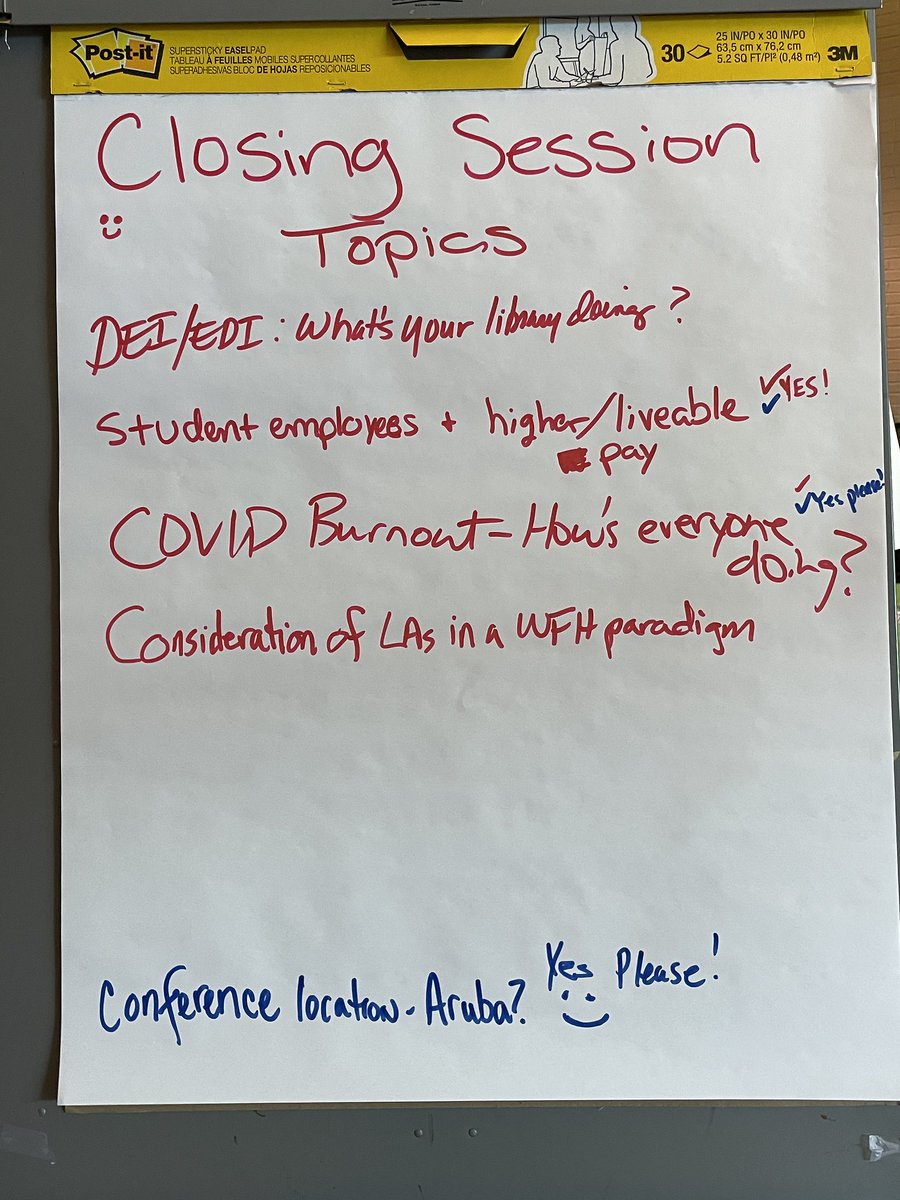 Post-it
SUPERSTICKY EASELPAD
TABLEAU À FEUILLES MOBILES SUPERCOLLANTES
SUPERADHESIVAS BLOC DE HOJAS REPOSICIONABLES
30
25 IN/PO x 30 IN/PO
63,5 cm x 76,2 cm
5.2 SQ FT/PI² (0,48 m²)
3M
Closing Session
Topics
DEI/EDI: What's your library doing?
Student employees + higher/liveable ✓✓YES!
pay
COVID Burnout - How's everyone ✓✓Yes please!
doing?
Consideration of LAs in a WFH paradigm
Conference location - Aruba? Yes Please!